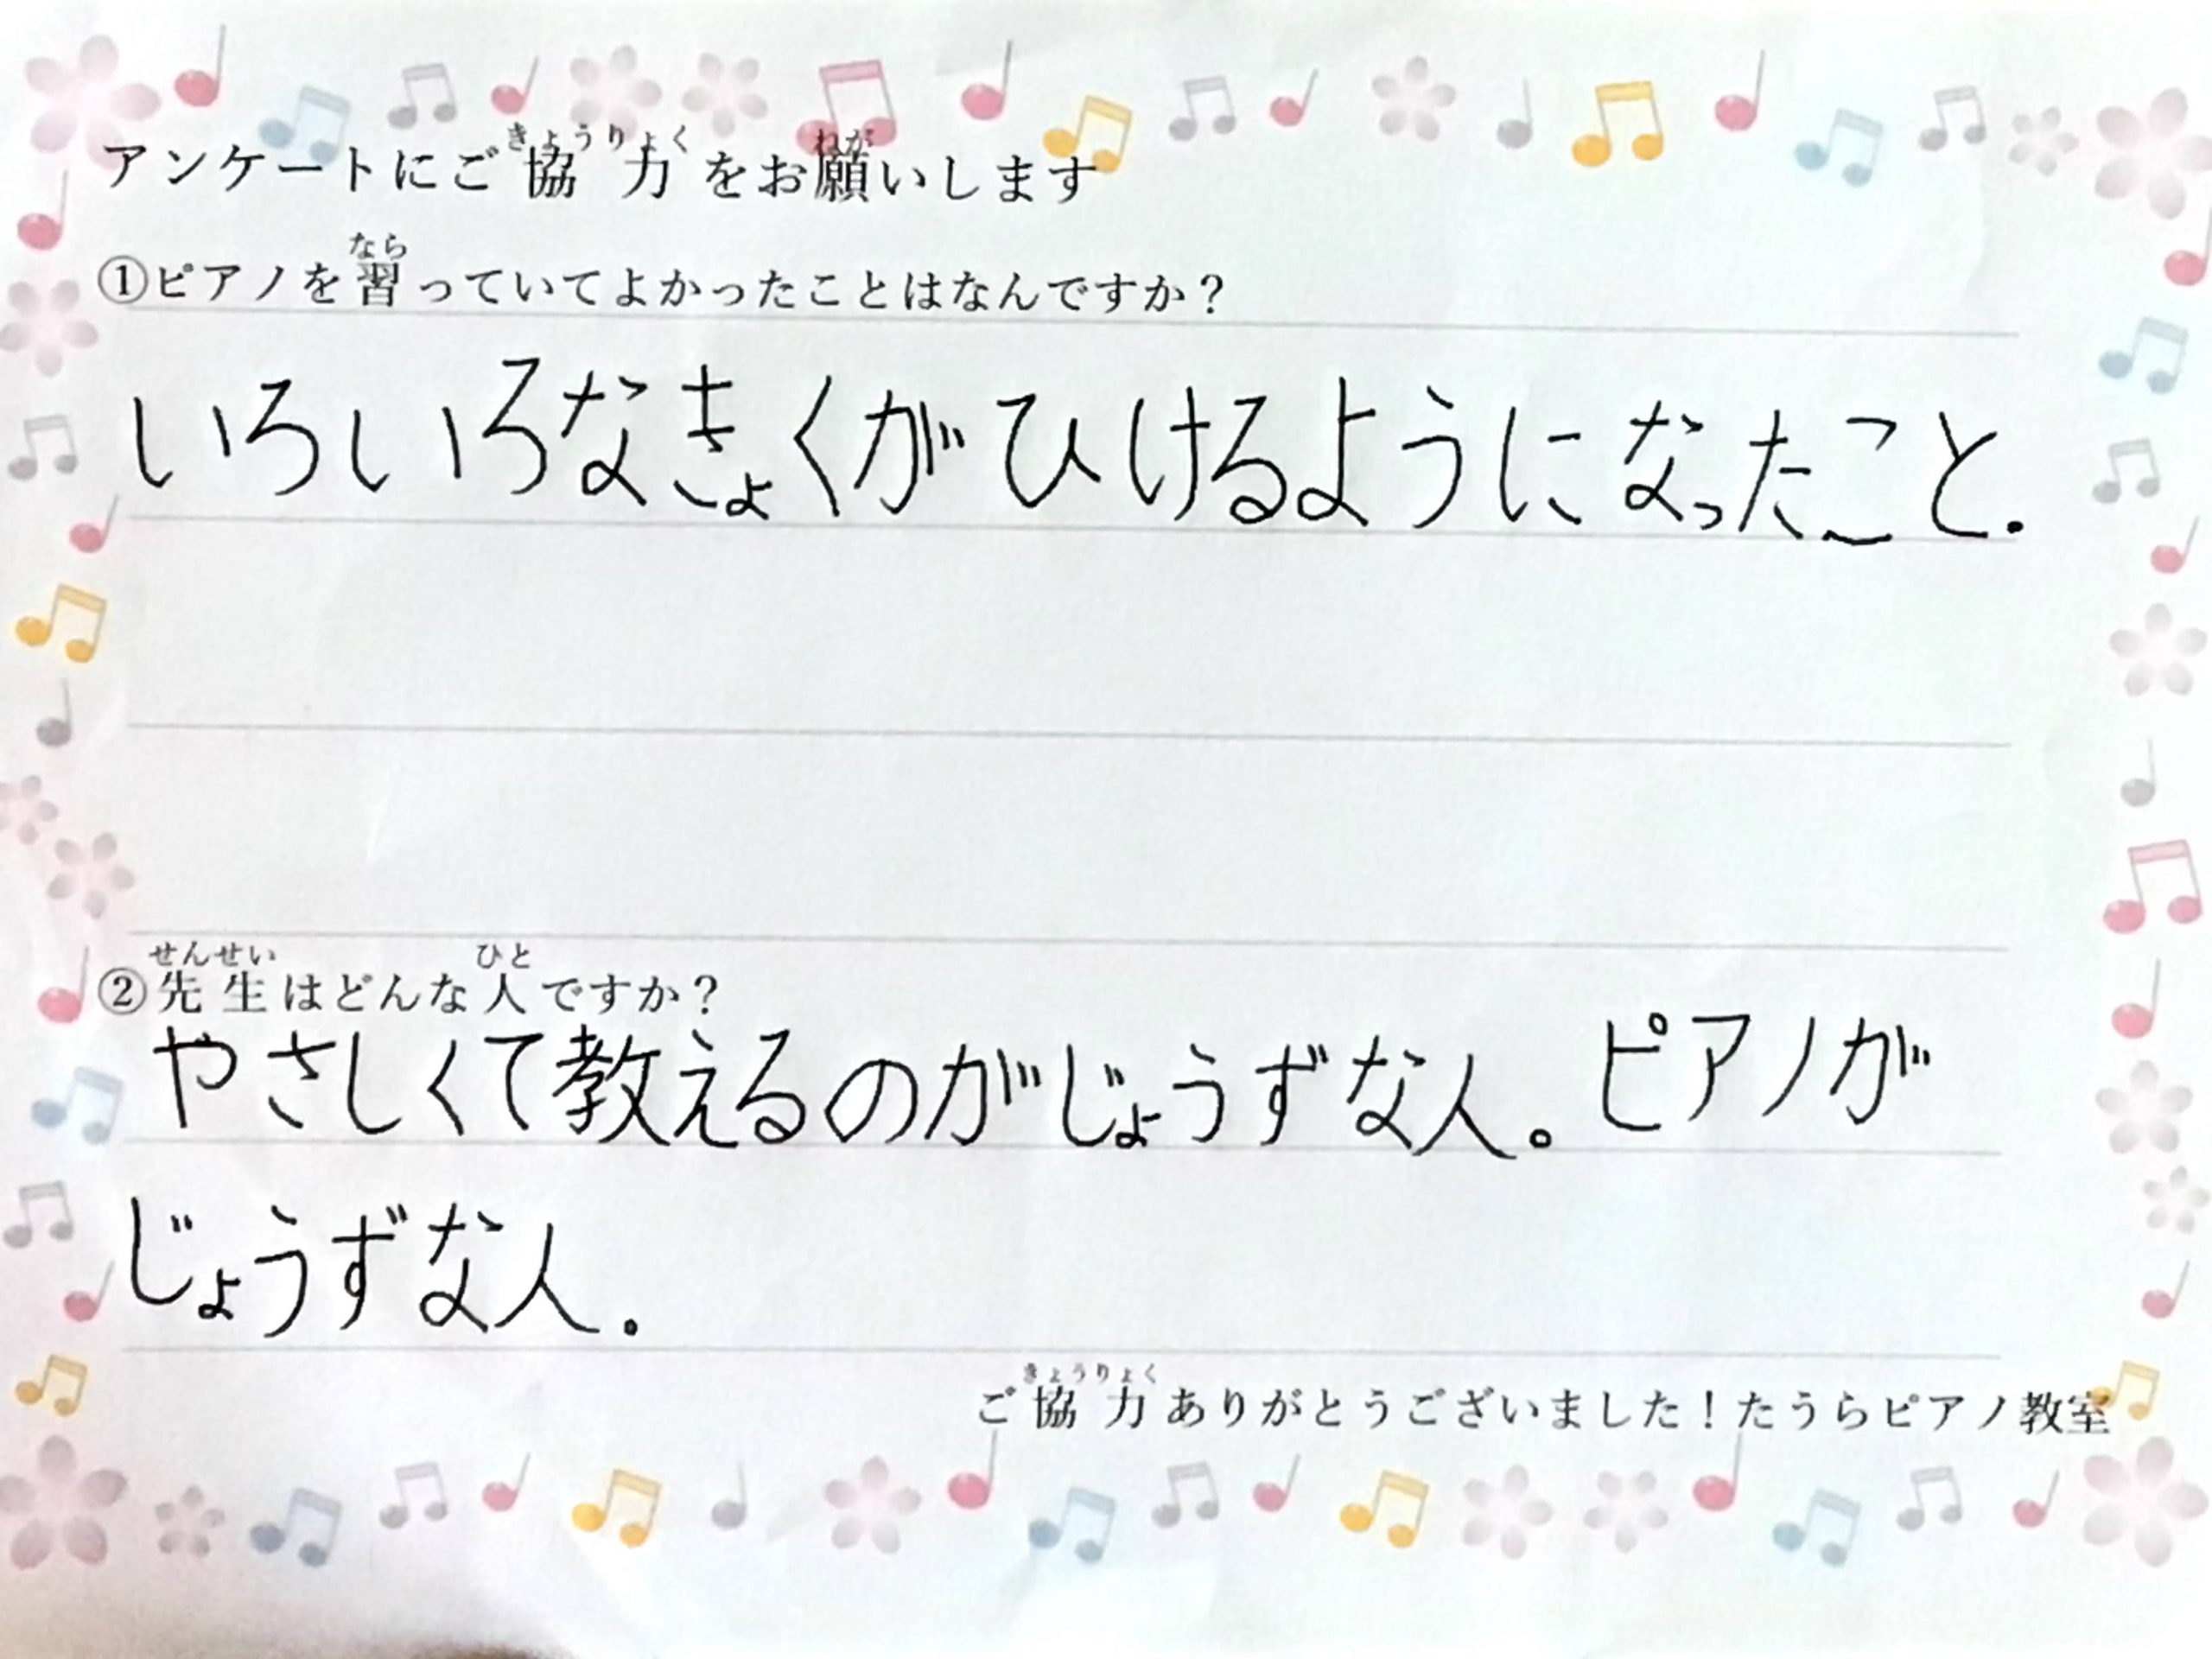 アンケートにご協力をお願いします
①ピアノを習っていてよかったことはなんですか？
いろいろなきょくがひけるようになったこと.
②先生はどんな人ですか？
やさしくて教えるのがじょうずな人。ピアノが
じょうずな人.
ご協力ありがとうございました！たうらピアノ教室